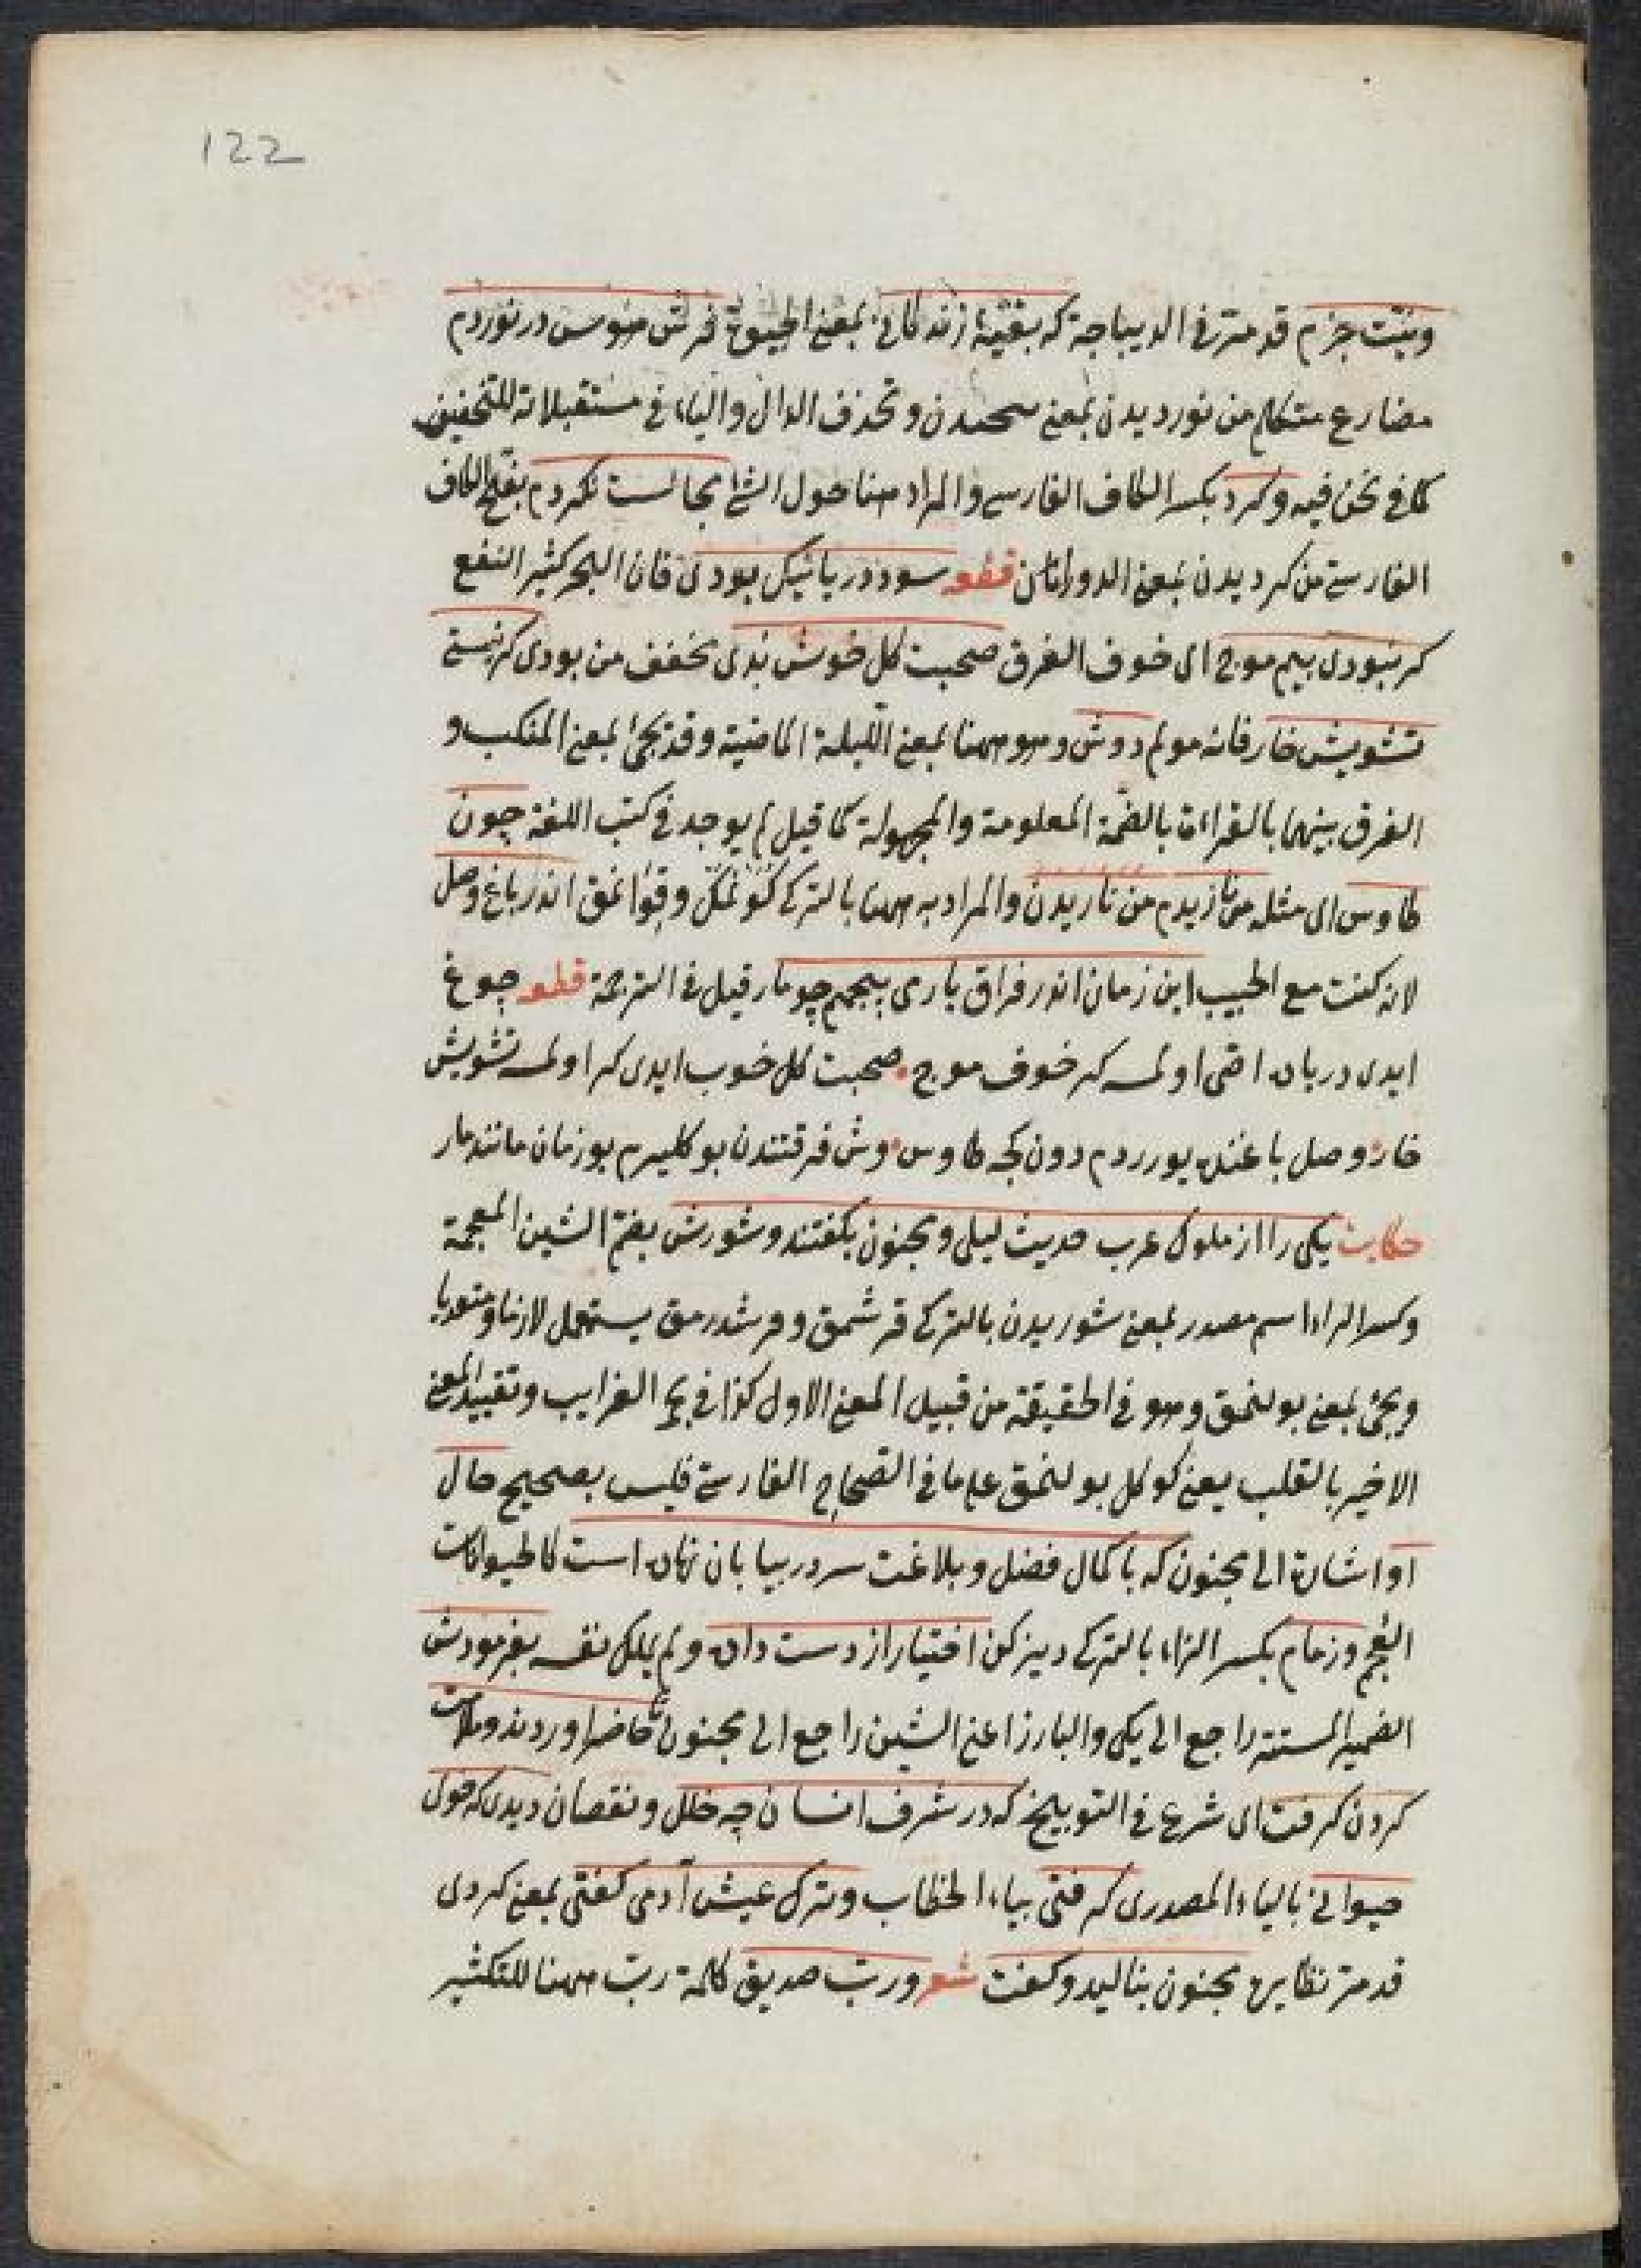 122
ونیت جزم قد مرت فى الديباجة كه بقيۀ زندكانى بمعنى الحيوة فرش هوس در نوردم
مضارع متكلم من نورديدن بمعنى پيچيدن وتحذف الدال والياء فى مستقبلاته للتخفيف
كما فى نحن فيه وكرد بكسر الكاف الفارسى والمراد هنا حول الشئ مجالست نكردم بفتح الكاف
الفارسى من كرديدن بمعنى الدوران قطعه سود دريا نيك بودى فان البحر كثير النفع
كر نبودى بيم موج اى خوف الغرق صحبت كل خوش بدى مخفف من بودى كر نيستى
تشويش خار فانه مولم دوش وهو ههنا بمعنى الليلة الماضية وقد يجئ بمعنى المنكب و
الفرق بينهما بالقراءة بالضمة المعلومة والمجهولة كما قيل لم يوجد فى كتب اللغة چون
طاوس اى مثله می نازيدم من نازيدن والمراد به ههنا بالتركى كونمك وقوانمق اندر باغ وصل
لانه كنت مع الحبيب اين زمان اندر فراق يارمى پيچم چو مار قيل فى الترجمة قطعه چوغ
ايدى درياده اصى اولمسه كر خوف موج صحبت كل خوب ايدى كر اولمسه تشويش
خار وصل باغنده يورردم دون كجه طاوس وش فرقتندن بوكليرم بو زمان مانند مار
حكايت يكى را از ملوك عرب حديث ليلى ومجنون بكفتند وشورش بضم الشين المعجمة
وكسر الراء اسم مصدر بمعنى شوريدن بالتركى قرشمق وقرشدرمق يستعمل لازما ومتعديا
ويجئ بمعنى بولنمق وهو فى الحقيقة من قبيل المعنى الاول كذا فى بحر الغرايب وتقييد المعنى
الاخير بالقلب يعنى كوكل بولنمق على ما فى الصحاح الفارسى فليس بصحيح حال
او اشارة الى مجنون كه با كمال فضل وبلاغت سر در بيابان نهاده است كالحيوانات
العجم وزمام بكسر الزاء بالتركى ديزكن اختيار از دست داده ولم يملك نفسه بفرمودش
الضمير المستتر راجع الى يكى والبارز اعنى الشين راجع الى مجنون تا حاضر اوردند وملامت
كردن كرفت اى شرع فى التوبيخ كه در شرف انسان چه خلل ونقصان ديدى كه خوى
حيوانى بالياء المصدرى كرفتى بياء الخطاب وترك عيش آدمى كفتى بمعنى كردى
قد مر نظايره مجنون بناليد وكفت شعر ورب صديق كلمة رب ههنا للتكثير